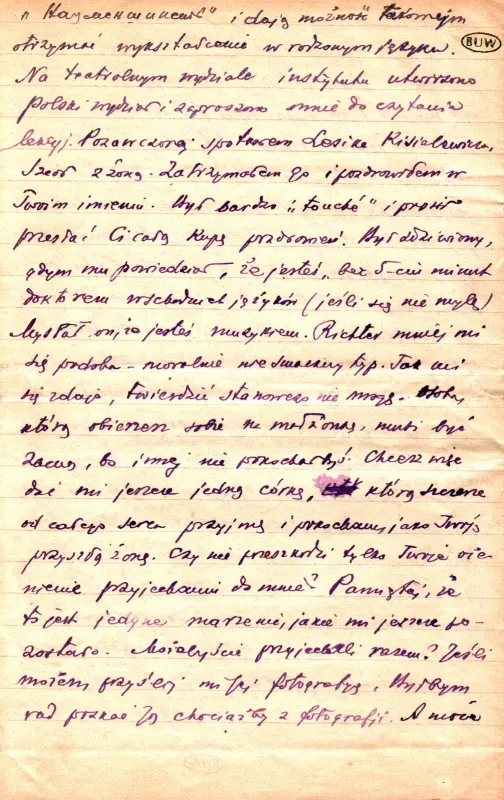 "Нацменшинств" i dają możność takowym
otrzymać wykształcenie w rodzonym języku.
BUW
Na teatralnym wydziale instytutu utworzono
Polski wydział i zaproszono mnie do czytania
lekcyj. Pozawczoraj spotkałem Lesika Kisielewicza,
szedł z żoną. Zatrzymałem go i pozdrowiłem w
Twoim imieniu. Był bardzo "touché" i prosił
przesłać Ci całą kupę pozdrowień. Był zdziwiony,
gdym mu powiedział, że jesteś "bez 5-ciu minut
doktorem wschodnich języków (jeśli się nie mylę)
Myślał on, że jesteś muzykiem. Richter mniej mi
się podoba – moralnie niesmaczny typ. Tak mi
się zdaje, twierdzić stanowczo nie mogę. Osoba,
którą obierzesz sobie na małżonkę, musi być
zacna, bo innej nie pokochałbyś. Chcesz więc
dać mi jeszcze jedną córkę, którą szczerze
od całego serca przyjmę i pokocham, jako Twoją
przyszłą żonę. Czy nie przeszkodzi tylko Twoje oże-
nienie przyjechaniu do mnie? Pamiętaj, że
to jest jedyne marzenie, jakie mi jeszcze po-
zostało. Możebyście przyjechali razem? Jeśli
możesz przyślij mi jej fotografję. Byłbym
rad poznać Ją chociażby z fotografji. A może